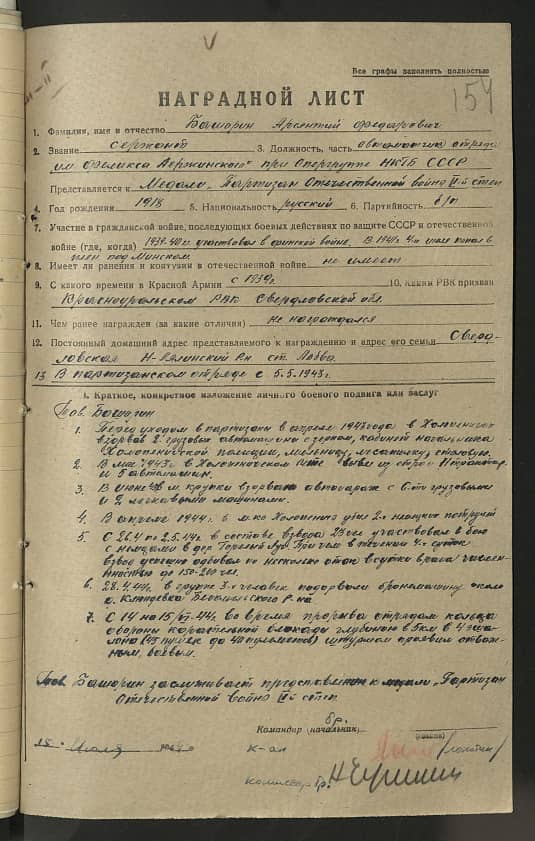 Все графы заполнять полностью
154
НАГРАДНОЙ ЛИСТ
1. Фамилия, имя и отчество Башарин Арсентий Федорович
2. Звание сержант 3. Должность, часть автоматчик отряда
им. Феликса Дзержинского" при Опергруппе НКГБ СССР
Представляется к Медали „Партизан Отечественной войны" II-й степ
4. Год рождения 1918 5. Национальность русский 6. Партийность б/п
7. Участие в гражданской войне, последующих боевых действиях по защите СССР и отечественной
войне (где, когда) 1939-40 г. участвовал в финской войне. В 1941 г. 4-го июля попал в
плен под Минском
8. Имеет ли ранения и контузии в отечественной войне не имеет
9. С какого времени в Красной Армии с 1939 г. 10. Каким РВК призван
Красноуральском РВК Свердловской обл.
11. Чем ранее награжден (за какие отличия) не награждался
12. Постоянный домашний адрес представляемого к награждению и адрес его семьи Сверд-
ловская Н-Лялинский р-н ст. Лобва
13. В партизанском отряде с 5.5.1943 г.
I. Краткое, конкретное изложение личного боевого подвига или заслуг
Тов. Башарин
1. Перед уходом в партизаны в апреле 1943 года в Холопеничах
взорвав 2 грузовых автомашины с зерном, кабинет начальника
Холопенической полиции, мельницу, лесопилку, столовую.
2. В мае 1943 г. в Холопеническом вывел из строя трактор
и 5 автомашин.
3. В июне м. Крупки взорвано автогараж с 6-ти грузовыми
и 2 легковыми машинами.
4. В апреле 1944 г. в м-ко Холопеничи убил 2-х немецких патрулей
5. С 26.4 по 2.5.44 г. в составе взвода 23 чел участвовал в бою
с немцами в дер Причем в течении 4-х суток
взвод успешно отбивал по несколько атак в сутки врага числен-
ностью до 150-200 чел.
6. 28.4.44 г. в группе 3-х человек подорвали бронемашину около
д. Бегомльского Р-на
7. С 14 на 15/VI-44 г. во время прорыва отрядом кольца
обороны карательной блокады глубиною в 5 км в 4 эше-
лона (45 пушек до 40 пулеметов) штурмом проявил отваж-
ным, боевым.
Тов. Башарин заслуживает представления к медали „Партизан
Отечественной войны II-й степ
Командир (начальник) бр.
15 июля 1944 г.
К-ан
комиссар бр.